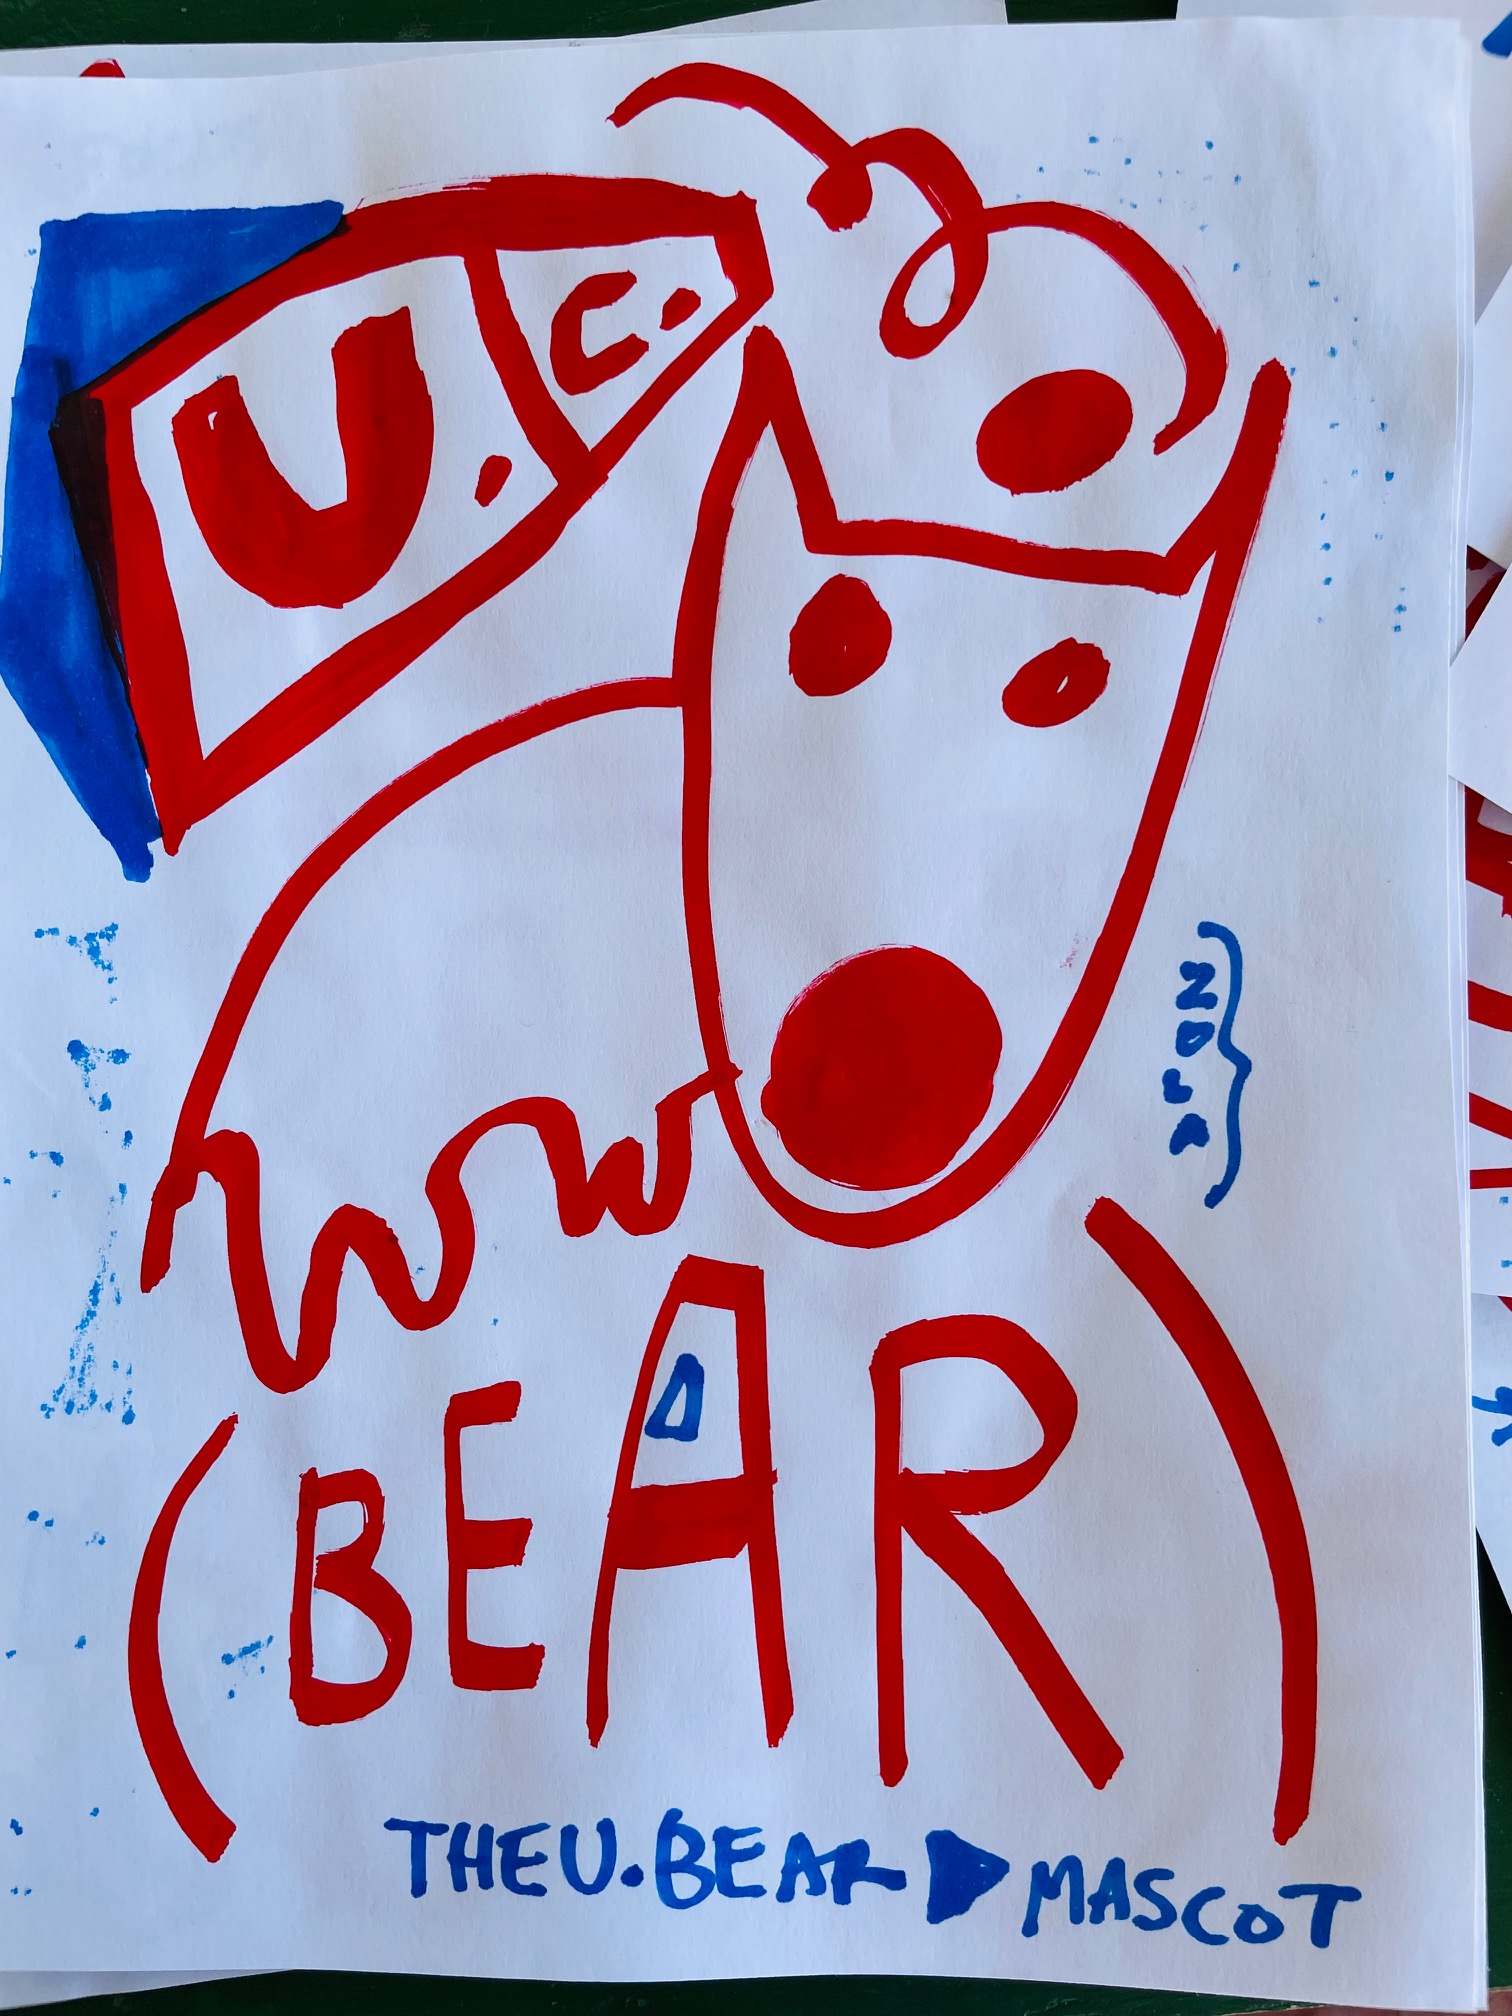 U. C.
(BEAR)
THE U. BEAR MASCOT